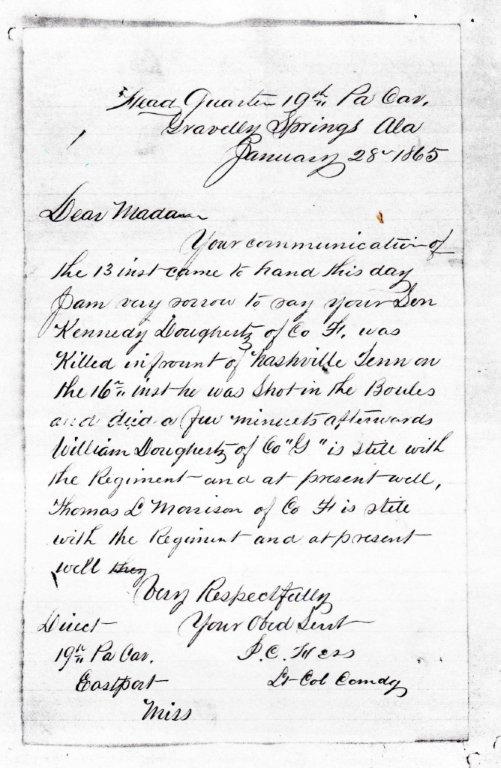 Head Quarters 19th Pa Cav,
Gravelly Springs Ala
January 28 1865
Dear Madam
Your communication of
the 13 inst came to hand this day
I am very sorrow to say your Son
Kennedy Dougherty of Co F, was
Killed in frount of Nashville Tenn on
the 16th inst he was Shot in the Boules
and died a few minuets afterwards
William Dougherty of Co "G" is still with
the Regiment and at present well,
Thomas L Morrison of Co F is still
with the Regiment and at present
well
Very Respectfully
Direct Your Obed Servt
19th Pa Cav, J. C. Hess
Eastport Lt Col Comdg
Miss